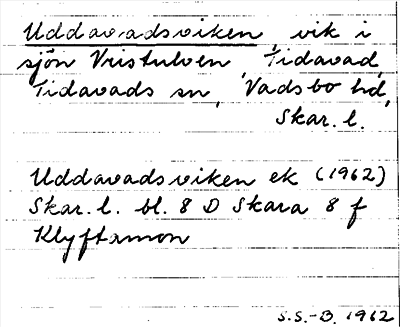 Uddavadsviken, vik i
sjön Vristulven, Tidavad,
Tidavads sn, Vadsbo hd,
Skar. l.
Uddavadsviken ek (1962)
Skar. l. bl. 8 D Skara 8 f
Klyftamon
S.S.-B. 1962